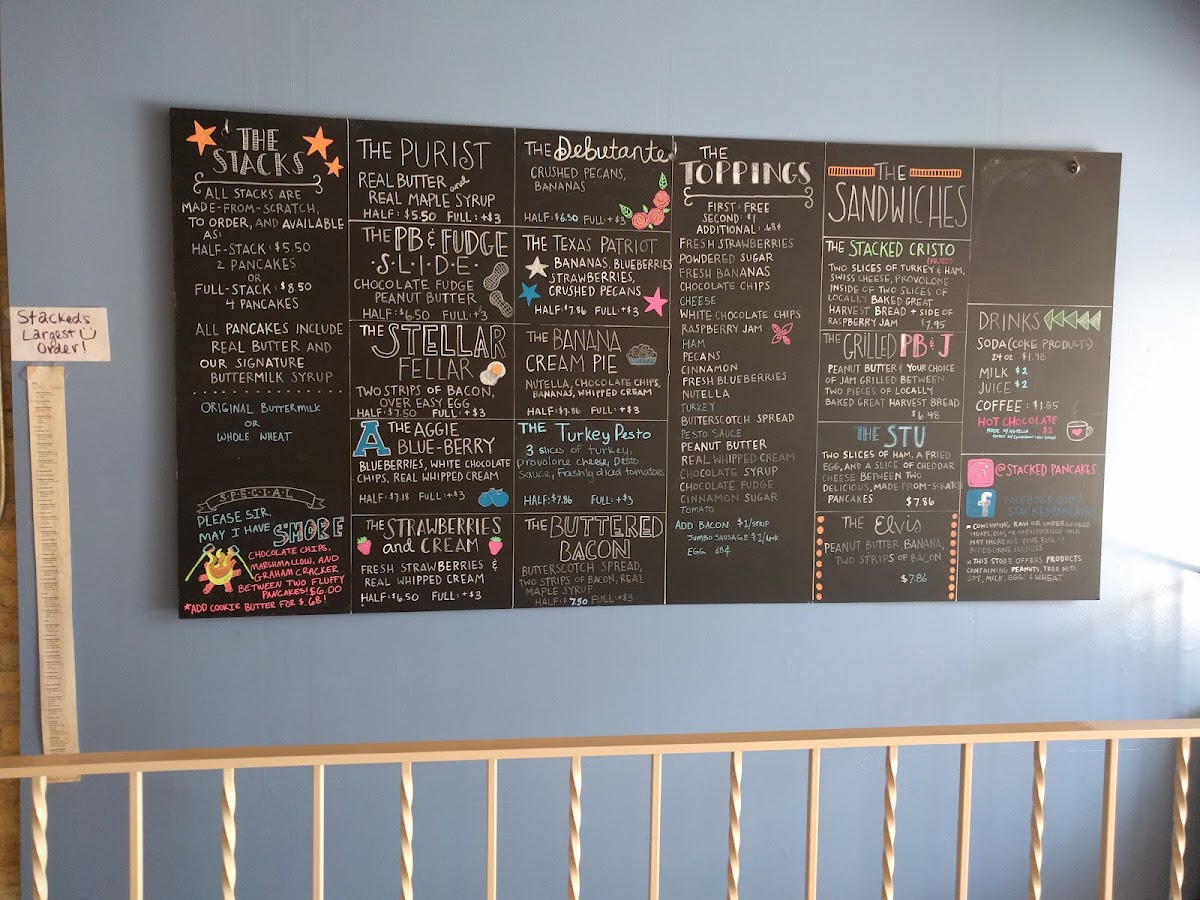 Stackeds
Largest
Order!
THE
STACKS
ALL STACKS ARE
MADE-FROM-SCRATCH,
TO ORDER, AND AVAILABLE
AS:
HALF-STACK: $5.50
2 PANCAKES
OR
FULL-STACK: $8.50
4 PANCAKES
ALL PANCAKES INCLUDE
REAL BUTTER AND
OUR SIGNATURE
BUTTERMILK SYRUP
ORIGINAL BUTTERMILK
OR
WHOLE WHEAT
SPECIAL
PLEASE SIR,
MAY I HAVE
S'MORE
CHOCOLATE CHIPS,
MARSHMALLOW, AND
GRAHAM CRACKER
BETWEEN TWO FLUFFY
PANCAKES! $6.00
*ADD COOKIE BUTTER FOR $.68!
THE PURIST
REAL BUTTER and
REAL MAPLE SYRUP
HALF: $5.50 FULL: +$3
THE PB & FUDGE
SLIDE
CHOCOLATE FUDGE
PEANUT BUTTER
HALF: $6.50 FULL: +$3
THE STELLAR
FELLAR
TWO STRIPS OF BACON,
OVER EASY EGG
HALF: $7.50 FULL: +$3
A THE AGGIE
BLUE-BERRY
BLUEBERRIES, WHITE CHOCOLATE
CHIPS, REAL WHIPPED CREAM
HALF: $7.18 FULL: +$3
THE STRAWBERRIES
and CREAM
FRESH STRAWBERRIES &
REAL WHIPPED CREAM
HALF: $6.50 FULL: +$3
THE Debutante!
CRUSHED PECANS,
BANANAS
HALF: $6.50 FULL: +$3
THE TEXAS PATRIOT
BANANAS, BLUEBERRIES
STRAWBERRIES,
CRUSHED PECANS
HALF: $7.86 FULL: +$3
THE BANANA
CREAM PIE
NUTELLA, CHOCOLATE CHIPS,
BANANAS, WHIPPED CREAM
HALF: $7.86 FULL: +$3
THE Turkey Pesto
3 slices of turkey,
provolone cheese, Pesto
Sauce, Freshly diced tomatoes
HALF: $7.86 FULL: +$3
THE BUTTERED
BACON
BUTTERSCOTCH SPREAD,
TWO STRIPS OF BACON, REAL
MAPLE SYRUP
HALF: 7.50 FULL: +$3
THE
TOPPINGS
FIRST: FREE
SECOND: $1
ADDITIONAL: .68¢
FRESH STRAWBERRIES
POWDERED SUGAR
FRESH BANANAS
CHOCOLATE CHIPS
CHEESE
WHITE CHOCOLATE CHIPS
RASPBERRY JAM
HAM
PECANS
CINNAMON
FRESH BLUEBERRIES
NUTELLA
TURKEY
BUTTERSCOTCH SPREAD
PESTO SAUCE
PEANUT BUTTER
REAL WHIPPED CREAM
CHOCOLATE SYRUP
CHOCOLATE FUDGE
CINNAMON SUGAR
TOMATO
ADD BACON $1/STRIP
JUMBO SAUSAGE $2/link
EGG 68¢
THE
SANDWICHES
THE STACKED CRISTO
(FRIED)
TWO SLICES OF TURKEY & HAM,
SWISS CHEESE, PROVOLONE
INSIDE OF TWO SLICES OF
LOCALLY BAKED GREAT
HARVEST BREAD + SIDE OF
RASPBERRY JAM $7.95
THE GRILLED PB & J
PEANUT BUTTER & YOUR CHOICE
OF JAM GRILLED BETWEEN
TWO PIECES OF LOCALLY
BAKED GREAT HARVEST BREAD
$6.48
THE STU
TWO SLICES OF HAM, A FRIED
EGG, AND A SLICE OF CHEDDAR
CHEESE BETWEEN TWO
DELICIOUS, MADE-FROM-SCRATCH
PANCAKES $7.86
THE Elvis
PEANUT BUTTER, BANANA,
TWO STRIPS OF BACON
$7.86
DRINKS
SODA (COKE PRODUCTS)
24 oz $1.98
MILK $2
JUICE $2
COFFEE: $1.85
HOT CHOCOLATE
MADE W/ NUTELLA $2
@STACKED PANCAKES
f FACEBOOK.COM/
STACKEDPANCAKES
* CONSUMING RAW OR UNDERCOOKED
MEATS, EGGS OR UNPASTEURIZED MILK
MAY INCREASE YOUR RISK OF
FOODBORNE ILLNESS
* THIS STORE OFFERS PRODUCTS
CONTAINING PEANUTS, TREE NUTS,
SOY, MILK, EGGS & WHEAT